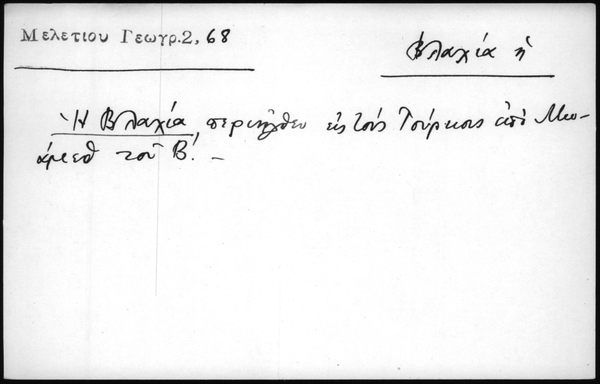 Μελετιου Γεωγρ.2, 68
Βλαχία ἡ
Ἡ Βλαχία, περιῆλθεν εἰς τοὺς Τούρκους ἀπὸ Μω-
άμεθ τοῦ Β΄. –